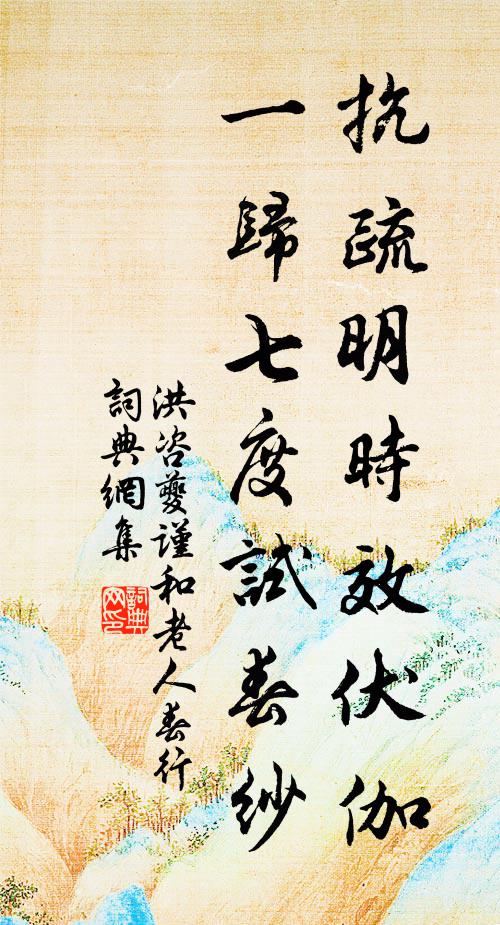 抗疏明時效伏伽
一歸七度試春紗
洪咨夔謹和老人春行
詞典網集
詞典
网印